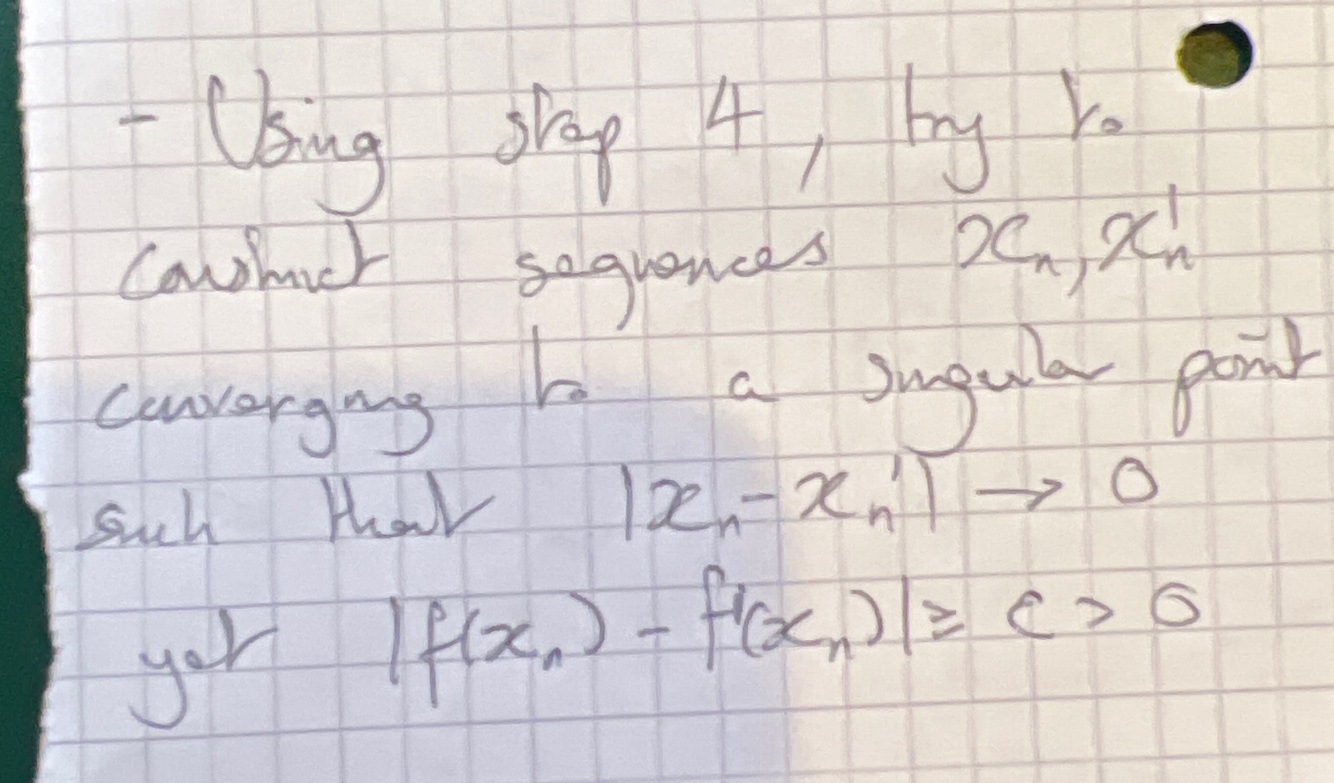 - Using step 4, try to
construct sequences xₙ, x'ₙ
converging to a singular point
such that |xₙ - xₙ'| → 0
yet |f(xₙ) - f'(xₙ)| ≥ c > 0